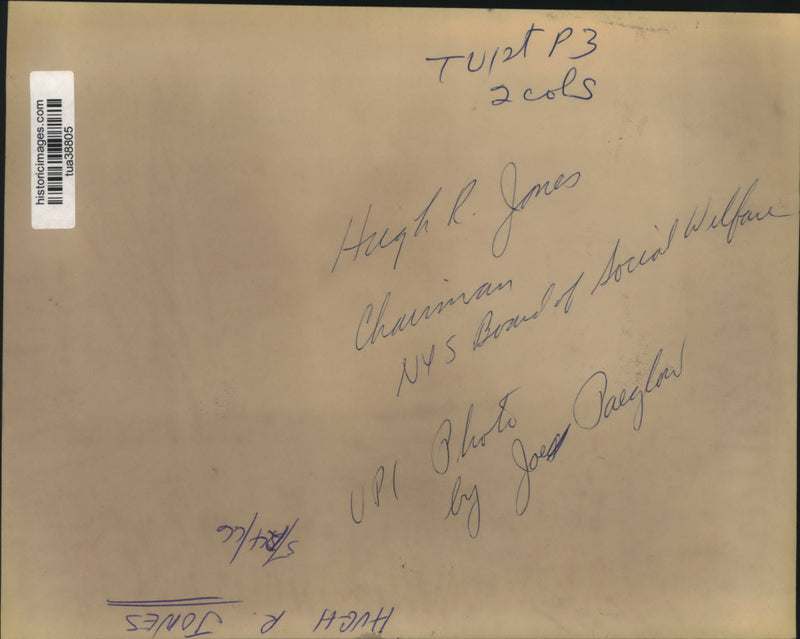 TU 1st P3
2 cols
historicimages.com
tua38805
Hugh R. Jones
Chairman
NYS Board of Social Welfare
UPI Photo
by Joe Paeglow
5/24/66
HUGH R. JONES